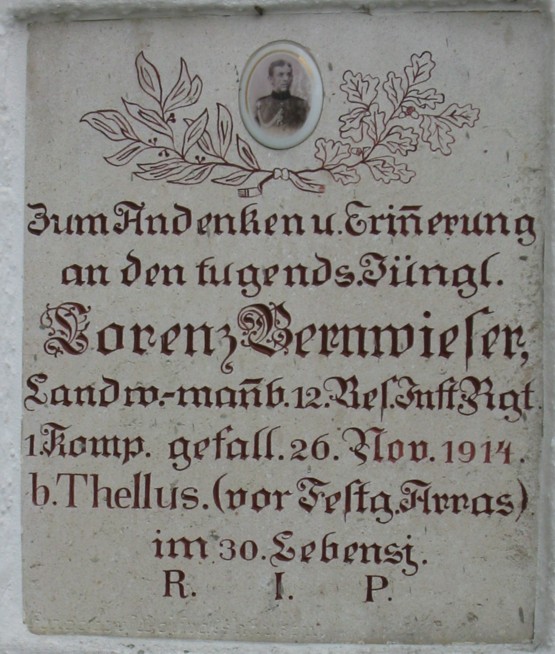 Zum Andenken u. Erin̄erung
an den tugends. Jüngl.
Lorenz Bernwieser,
Landw.-man̄ b. 12. Res. Inft Rgt.
1. Komp. gefall. 26. Nov. 1914.
b. Thellus. (vor Festg. Arras)
im 30. Lebensj.
R. I. P.